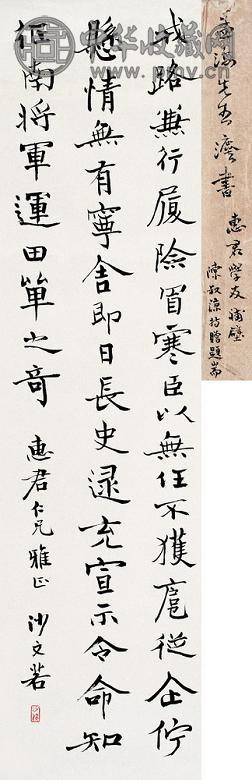 孟海先生書
惠君學友補壁
陳叔諒持贈題耑
戎路兼行履險冒寒臣以無任不獲扈從企佇
懸情無有寧舍即日長史逯充宣示令命知
征南將軍運田單之奇
惠君仁兄雅正 沙文若
中华收藏网